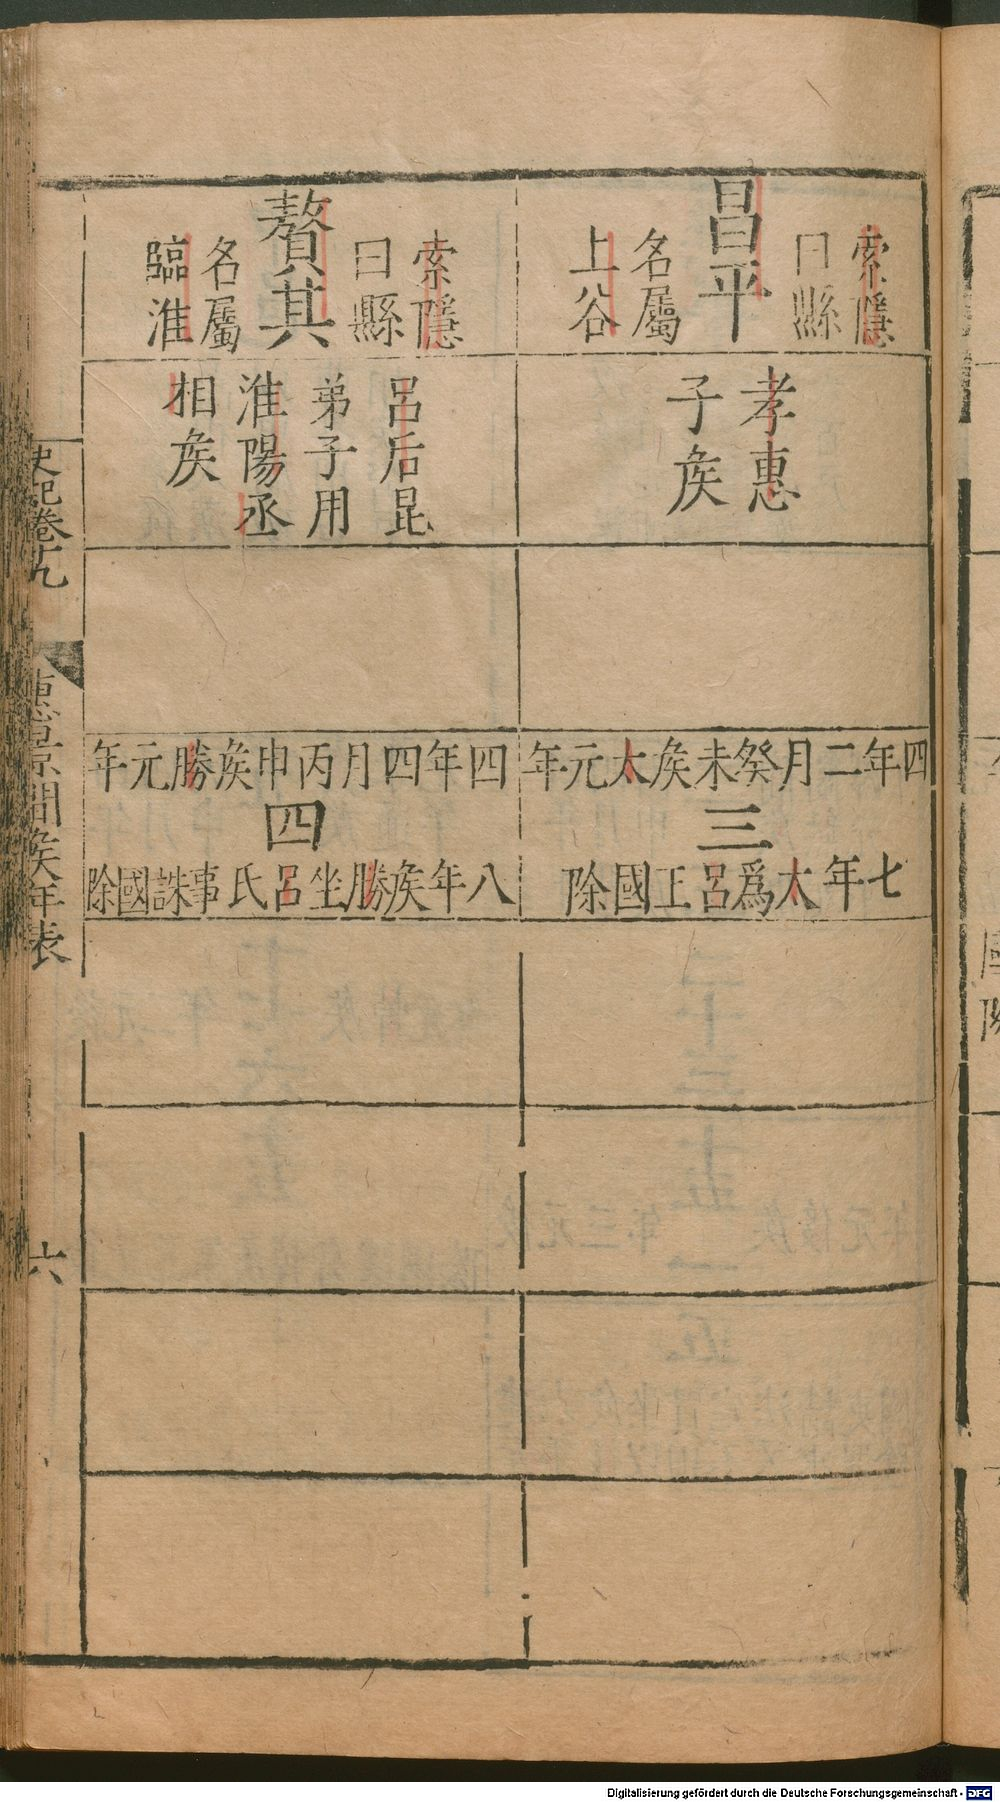 索隱
曰縣
昌平
名屬
上谷
孝惠
子矦
四年二月癸未矦太元年
三
七年太爲呂王國除
索隱
曰縣
贅其
名屬
臨淮
呂后昆
弟子用
淮陽丞
相矦
四年四月丙申矦勝元年
四
八年矦勝坐呂氏事誅國除
史記卷十九
惠景間矦年表
六
Digitalisierung gefördert durch die Deutsche Forschungsgemeinschaft - DFG